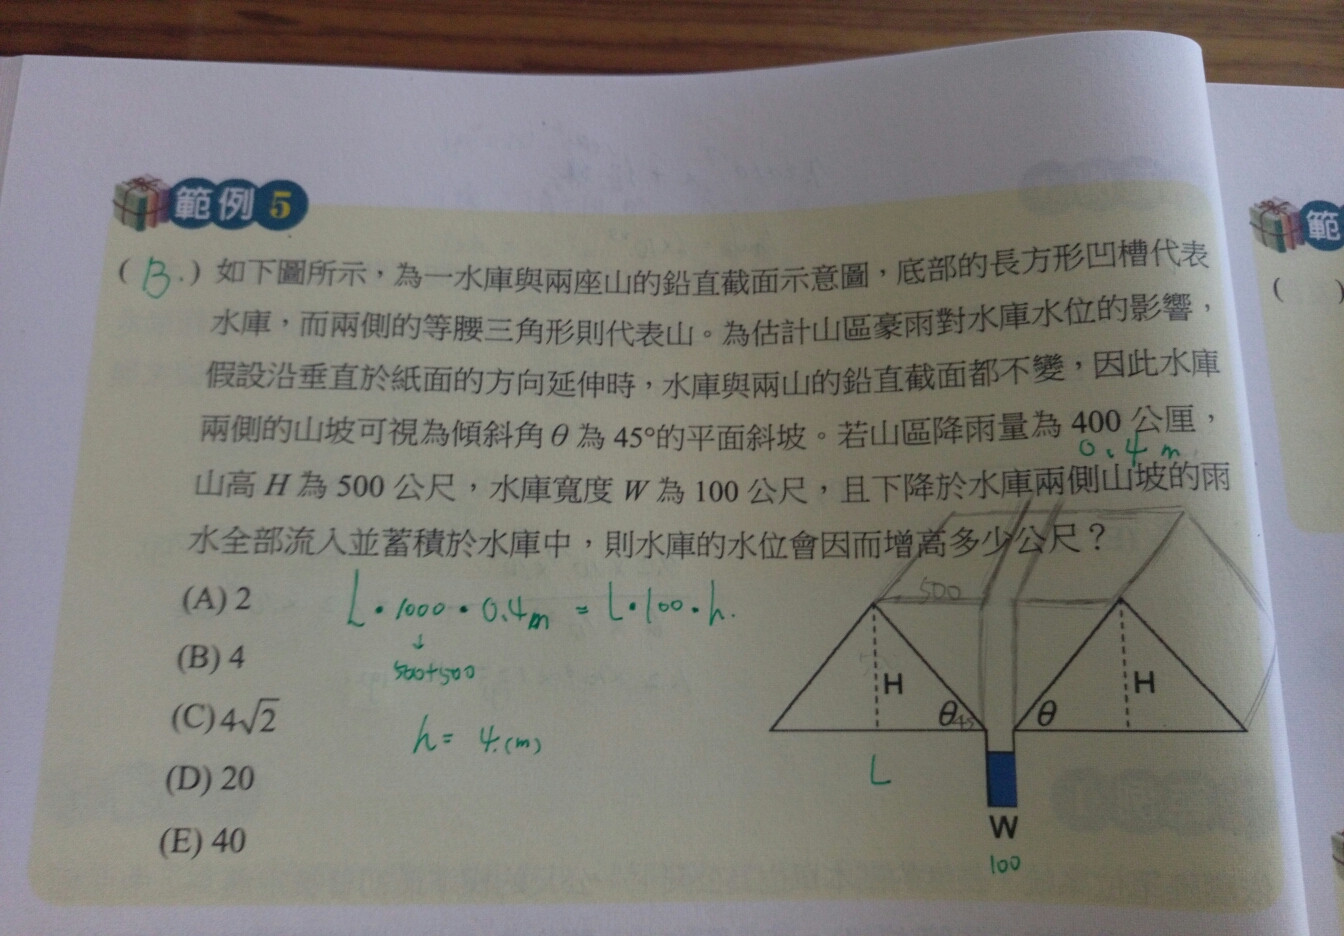 範例 5
範
( B. ) 如下圖所示，為一水庫與兩座山的鉛直截面示意圖，底部的長方形凹槽代表
( )
水庫，而兩側的等腰三角形則代表山。為估計山區豪雨對水庫水位的影響，
假設沿垂直於紙面的方向延伸時，水庫與兩山的鉛直截面都不變，因此水庫
兩側的山坡可視為傾斜角 θ 為 45°的平面斜坡。若山區降雨量為 400 公厘，
0.4 m
山高 H 為 500 公尺，水庫寬度 W 為 100 公尺，且下降於水庫兩側山坡的雨
水全部流入並蓄積於水庫中，則水庫的水位會因而增高多少公尺？
(A) 2
L · 1000 · 0.4m = L · 100 · h.
500
↓
500+500
(B) 4
H
H
(C) 4√2
h = 4.(m)
θ 45
θ
(D) 20
L
W
(E) 40
100